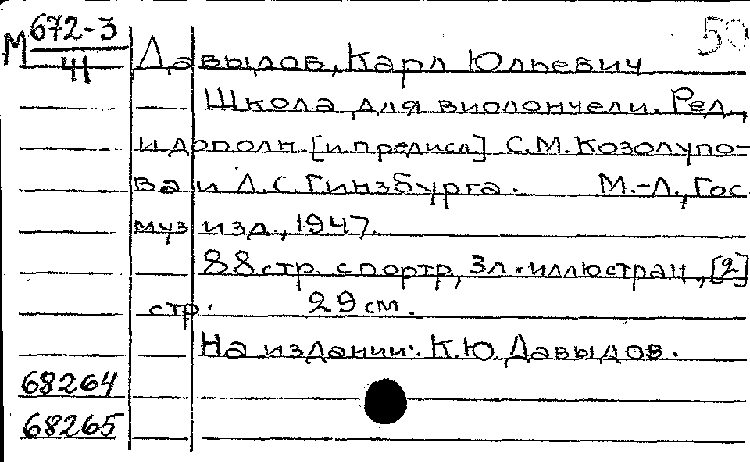 50
М 672-3
41
Давыдов, Карл Юльевич
Школа для виолончели. Ред.,
и дополн. [и предисл] С.М. Козолупо-
ва и Л.С. Гинзбурга. М.-Л., Гос.
муз изд., 1947.
88 стр. с портр, 3л. иллюстрац, [2]
стр. 29 см.
На издании: К.Ю. Давыдов.
68264
68265